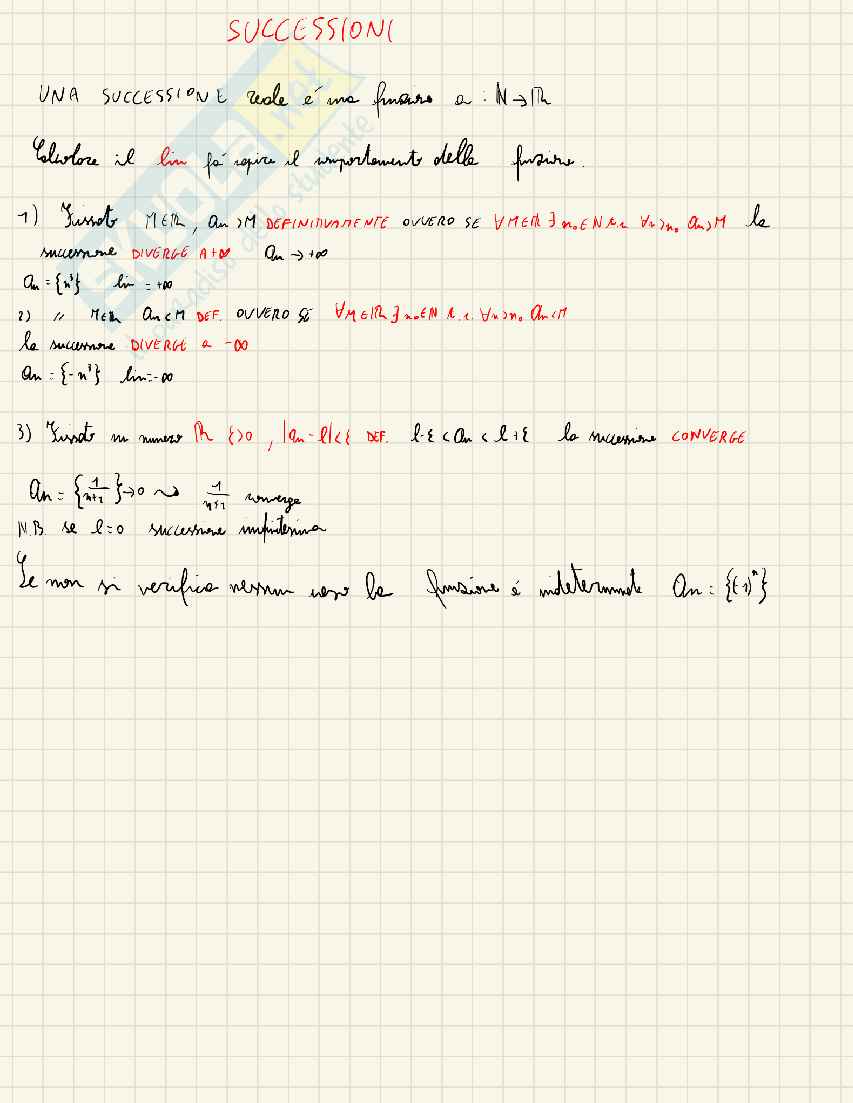 SUCCESSIONI
UNA SUCCESSIONE reale é una funzione a : ℕ→ℝ
Calcolare il lim fá capire il comportamento della funzione.
1) Fissato M∈ℝ, an>M DEFINITIVAMENTE OVVERO SE ∀M∈ℝ ∃ n₀∈ℕ t.c. ∀n>n₀ an>M la
successione DIVERGE A +∞ an→+∞
an = {n³} lim = +∞
2) // M∈ℝ an<M DEF. OVVERO SE ∀M∈ℝ ∃ n₀∈ℕ t.c. ∀n>n₀ an<M
la successione DIVERGE a -∞
an = {-n³} lim=-∞
3) Fissato un numero ℝ ε>0, |an-l|<ε DEF. l-ε < an < l+ε la successione CONVERGE
an = {1/(n+2)}→0 ⇝ 1/(n+2) converge
N.B. se l=0 successione infinitesima
Se non si verifica nessun caso la funzione é indeterminata an = {(-1)ⁿ}
SKUOLA.net
il paradiso dello studente